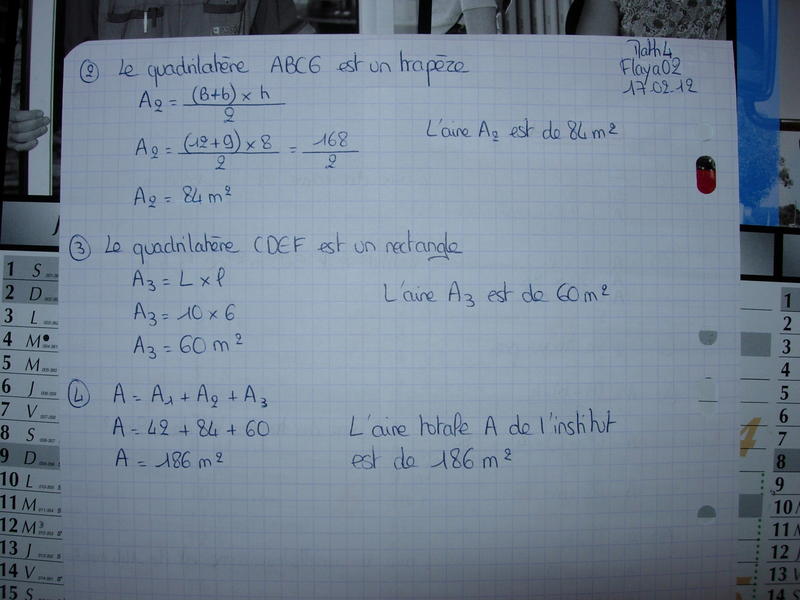 Math4
Flaya02
17.02.12
② Le quadrilatère ABCG est un trapèze
A₂ = (B+b) × h / 2
A₂ = (12+9) × 8 / 2 = 168 / 2
L'aire A₂ est de 84 m²
A₂ = 84 m²
③ Le quadrilatère CDEF est un rectangle
A₃ = L × l
L'aire A₃ est de 60 m²
A₃ = 10 × 6
A₃ = 60 m²
④ A = A₁ + A₂ + A₃
A = 42 + 84 + 60
L'aire totale A de l'institut
A = 186 m²
est de 186 m²
1 S
2 D
3 L
4 M
5 M
6 J
7 V
8 S
9 D
10 L
11 M
12 M
13 J
14 V
15 S
1
2
3
4
5
6
7
8
9
10
11
12
13
14